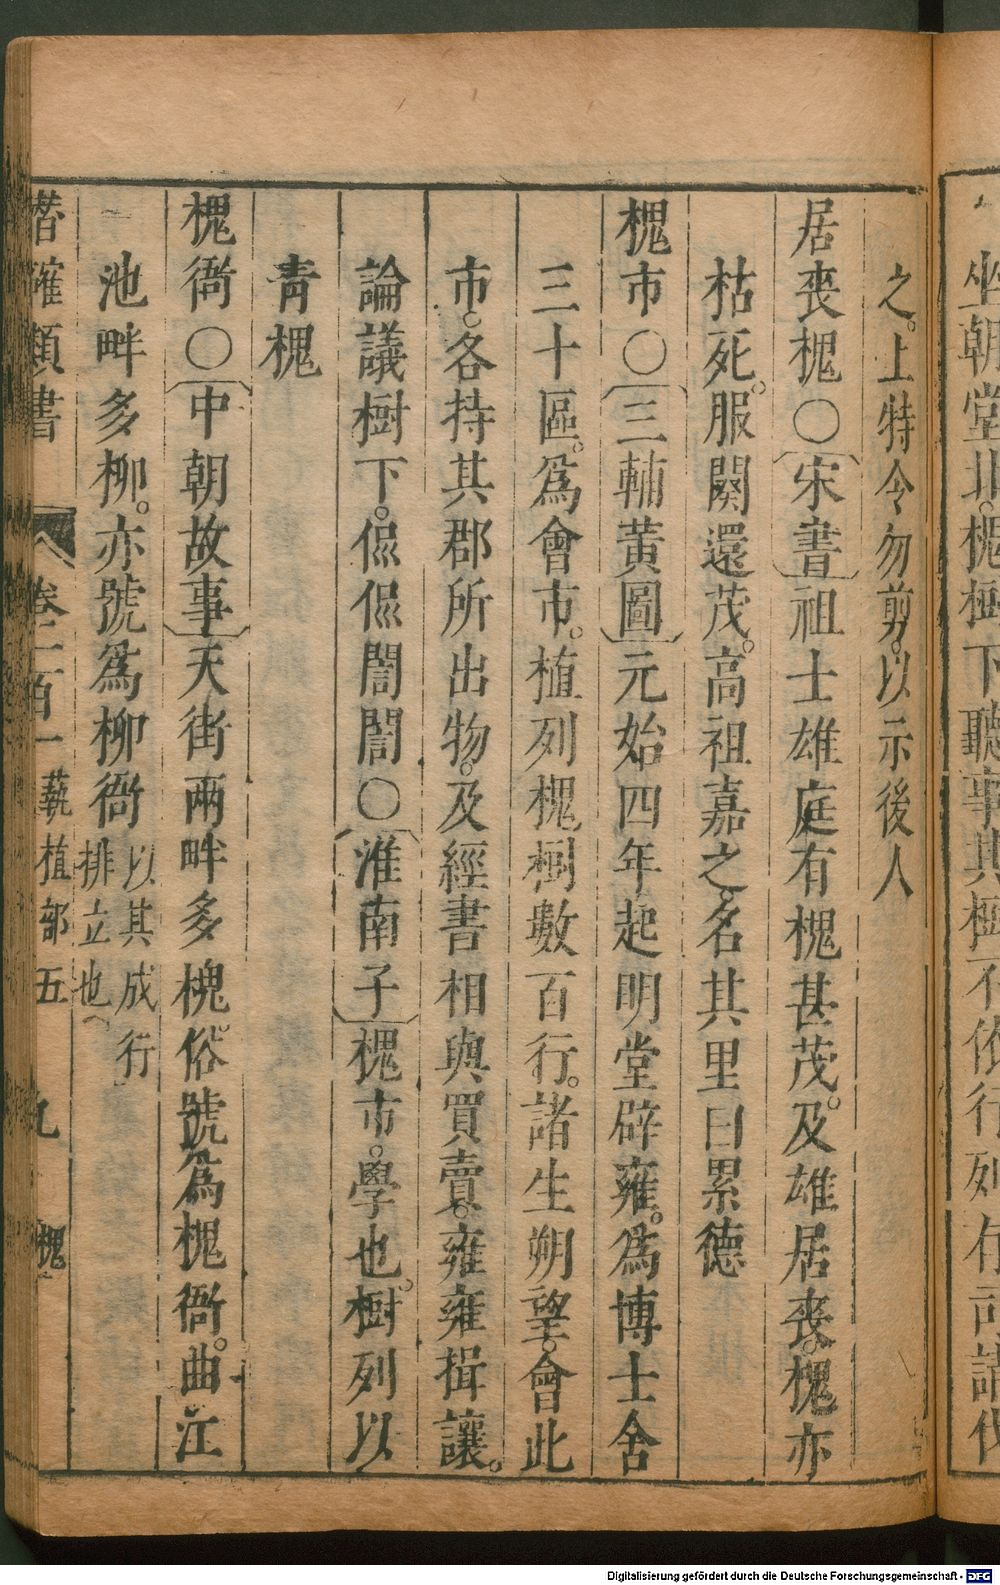 坐朝堂北。槐樹下聽事其樹不依行列有司請伐
之。上特令勿剪。以示後人
居喪槐〇〔宋書〕祖士雄庭有槐甚茂。及雄居喪。槐亦
枯死。服闋還茂。高祖嘉之。名其里曰累德
槐市〇〔三輔黃圖〕元始四年起明堂辟雍。爲博士舍
三十區。爲會市。植列槐樹數百行。諸生朔望。會此
市。各持其郡所出物。及經書相與買賣。雍雍揖讓。
論議樹下。侃侃誾誾〇〔淮南子〕槐市。學也。樹列以
靑槐
槐衙〇〔中朝故事〕天街兩畔多槐。俗號爲槐衙。曲江
池畔多柳。亦號爲柳衙以其成行排立也
潛確類書 卷一百一 藝植部五 九 槐
Digitalisierung gefördert durch die Deutsche Forschungsgemeinschaft - DFG